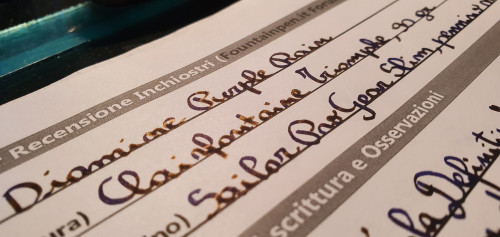 Recensione Inchiostri (Fountainpen.it Forum
Diamine Purple Rain
Clairefontaine Triomphe, 90 gr
ino) Sailor Pro Gear Slim, pennino
scrittura e Osservazioni
la Definit